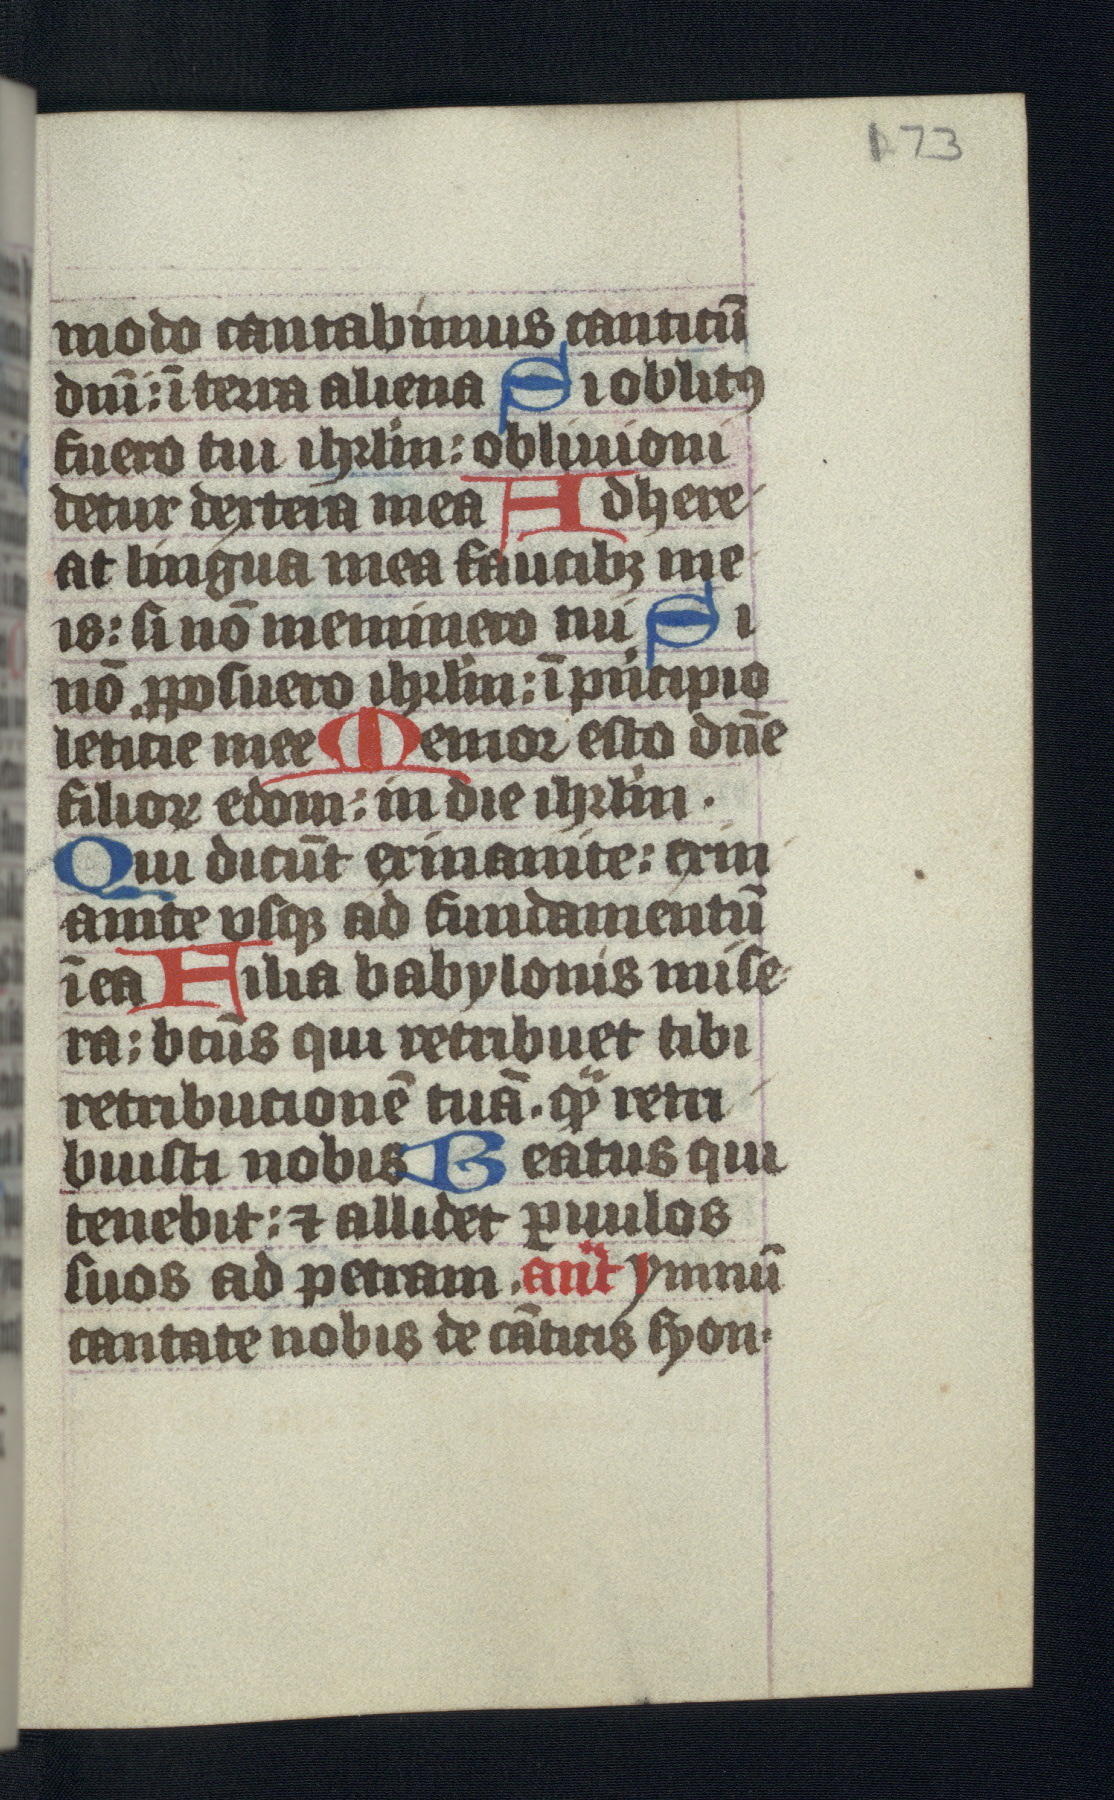 173
modo cantabimus canticū
dnī: ī terra aliena Si oblitꝯ
fuero tui ihrlm̄: obliuioni
detur dextera mea Adhere
at lingua mea faucibꝫ me
is: si nō meminero tui Si
nō ꝓposuero ihrlm̄: ī p̄ncipio
leticie mee Memor esto dn̄e
filioꝝ edom: in die ihrlm̄.
Qui dicūt exinanite: exin
anite vsqꝫ ad fundamentū
ī ea Filia babylonis mise
ra: btūs qui retribuet tibi
retribucionē tuā. qͣ̄ retri
buisti nobis Beatus qui
tenebit: ⁊ allidet ꝑuulos
suos ad petram. ant̄ ymnū
cantate nobis de cāticis syon.